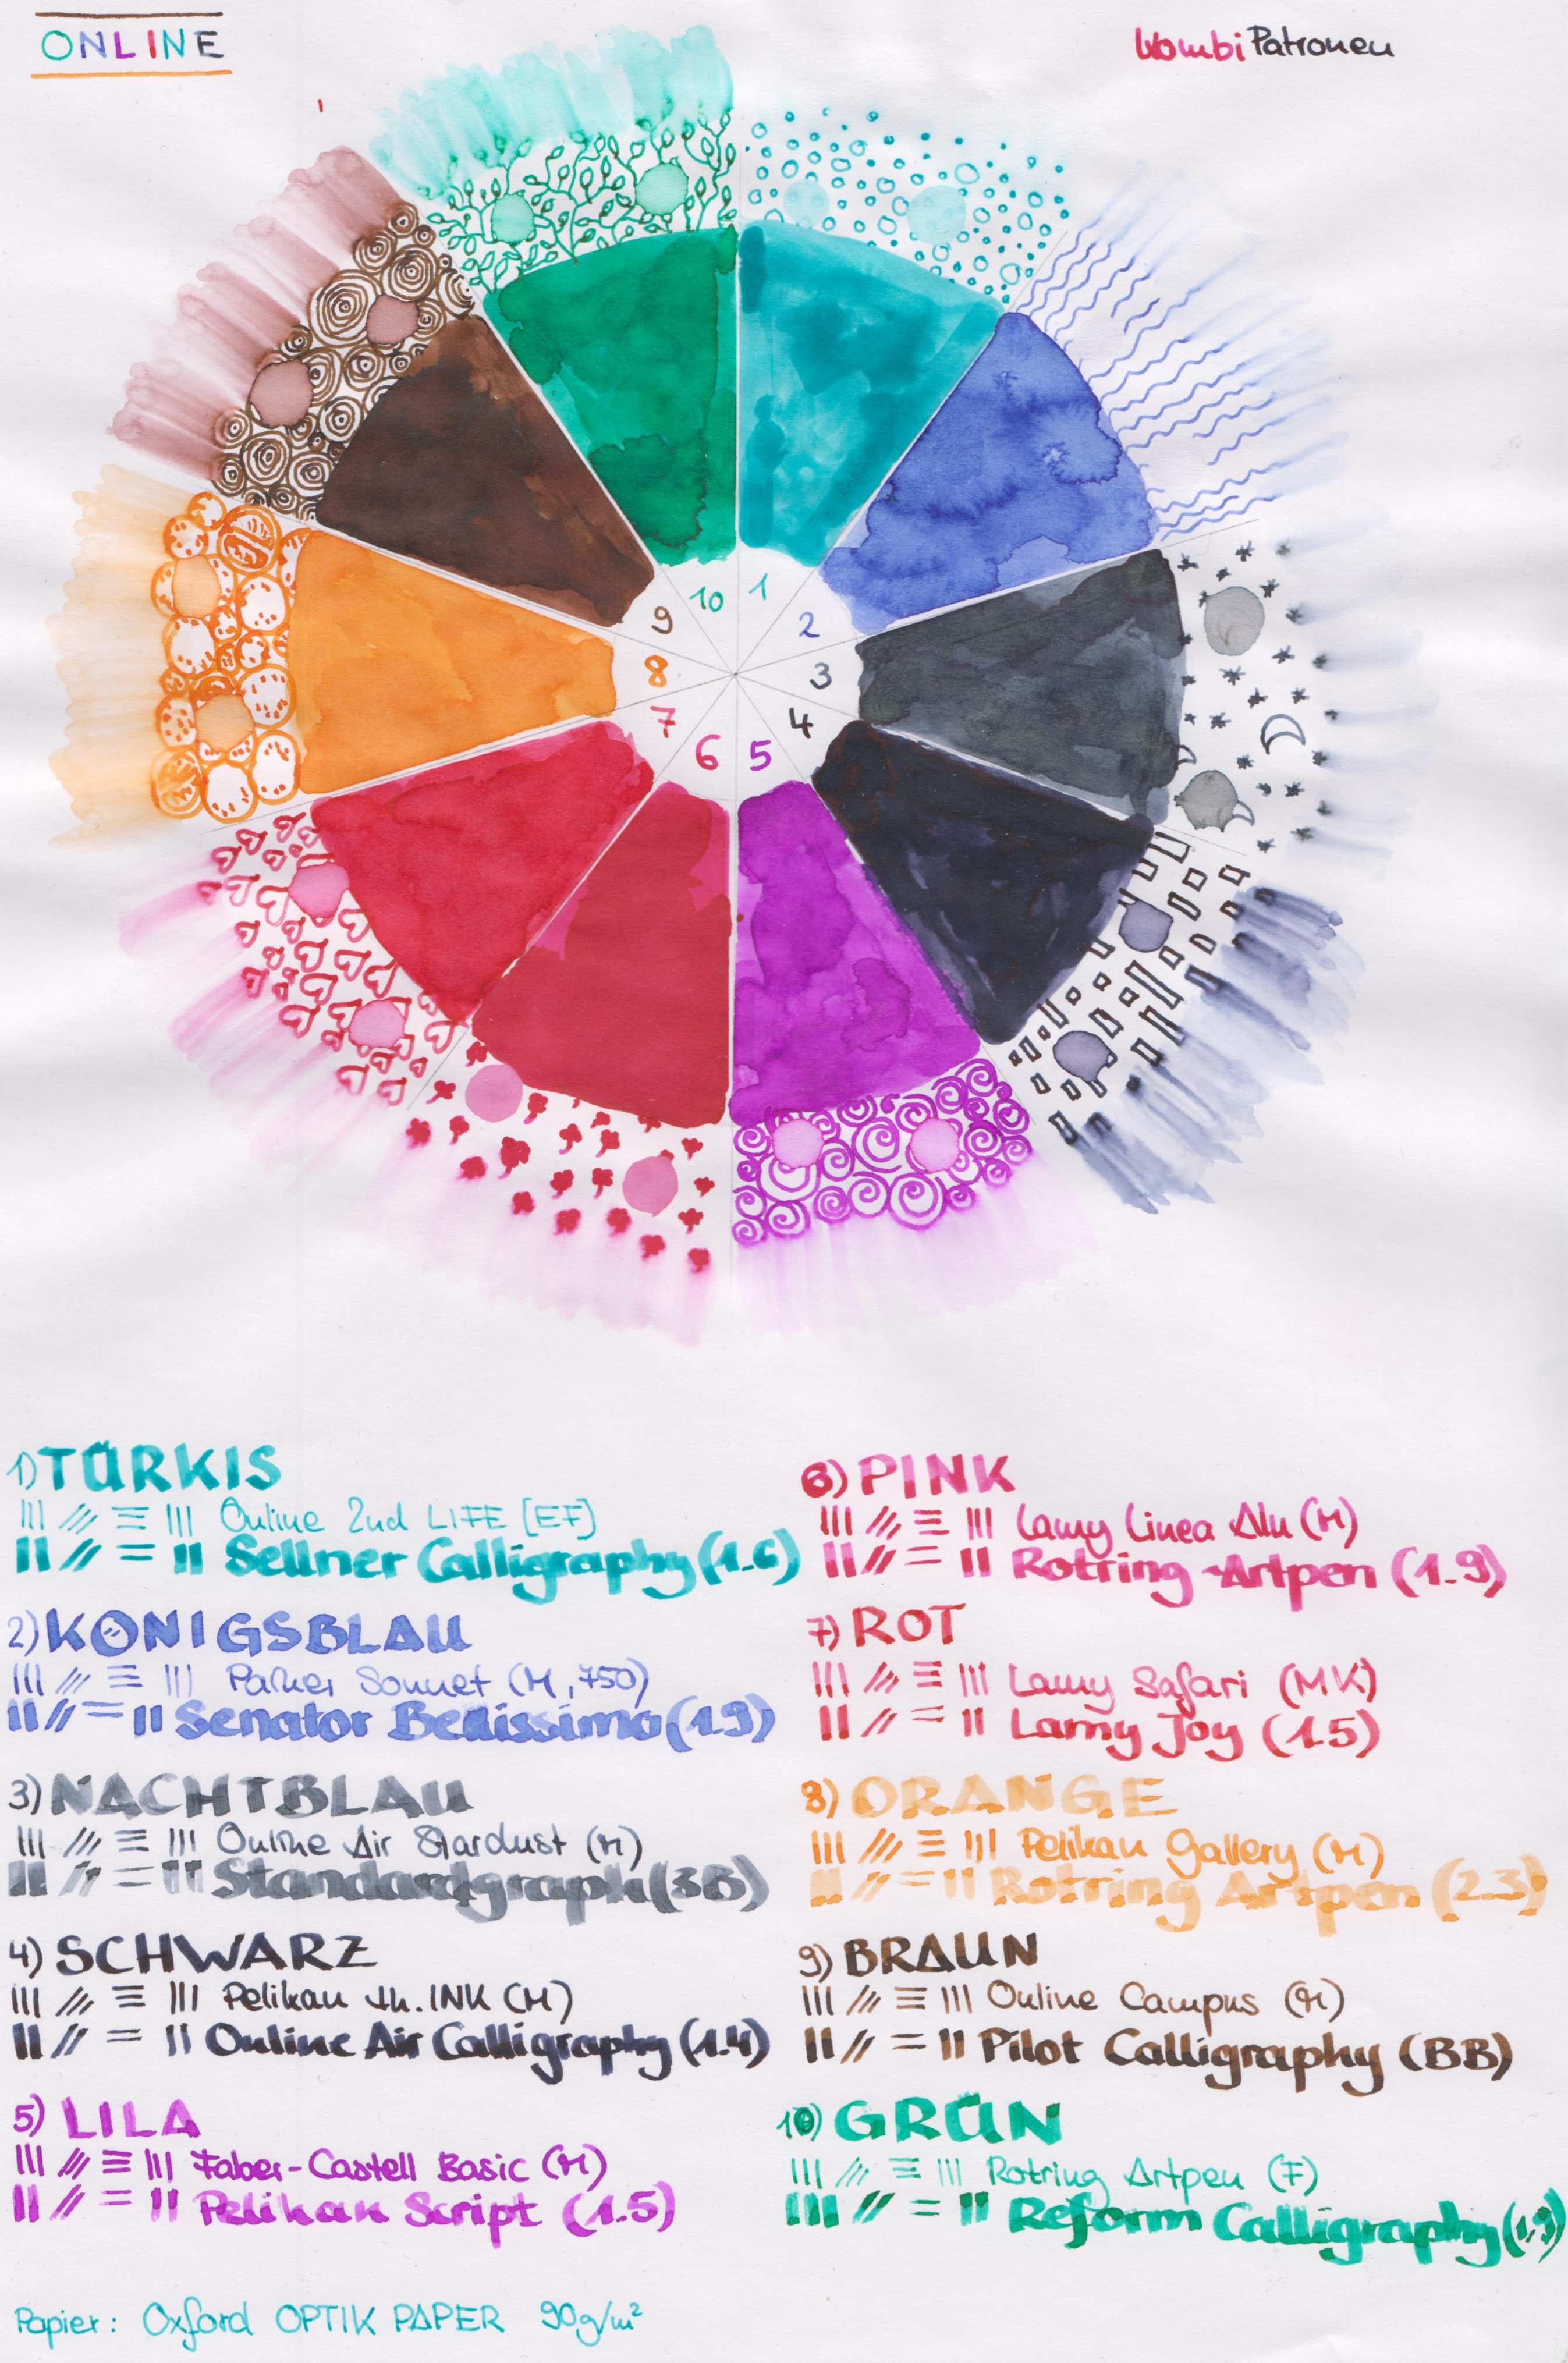 ONLINE
KombiPatronen
10 1
9 2
8 3
7 4
6 5
1) TÜRKIS
Online 2nd LIFE [EF]
Sellner Calligraphy (1.6)
2) KÖNIGSBLAU
Parker Sonnet (M, 750)
Senator Bellissimo (1.9)
3) NACHTBLAU
Online Air Stardust (M)
Standardgraph (3B)
4) SCHWARZ
Pelikan th.INK (M)
Online Air Calligraphy (1.4)
5) LILA
Faber-Castell Basic (M)
Pelikan Script (1.5)
6) PINK
Lamy Linea Alu (M)
Rotring Artpen (1.9)
7) ROT
Lamy Safari (MK)
Lamy Joy (1.5)
8) ORANGE
Pelikan Gallery (M)
Rotring Artpen (2.3)
9) BRAUN
Online Campus (M)
Pilot Calligraphy (BB)
10) GRÜN
Rotring Artpen (F)
Reform Calligraphy (1.9)
Papier: Oxford OPTIK PAPER 90g/m²